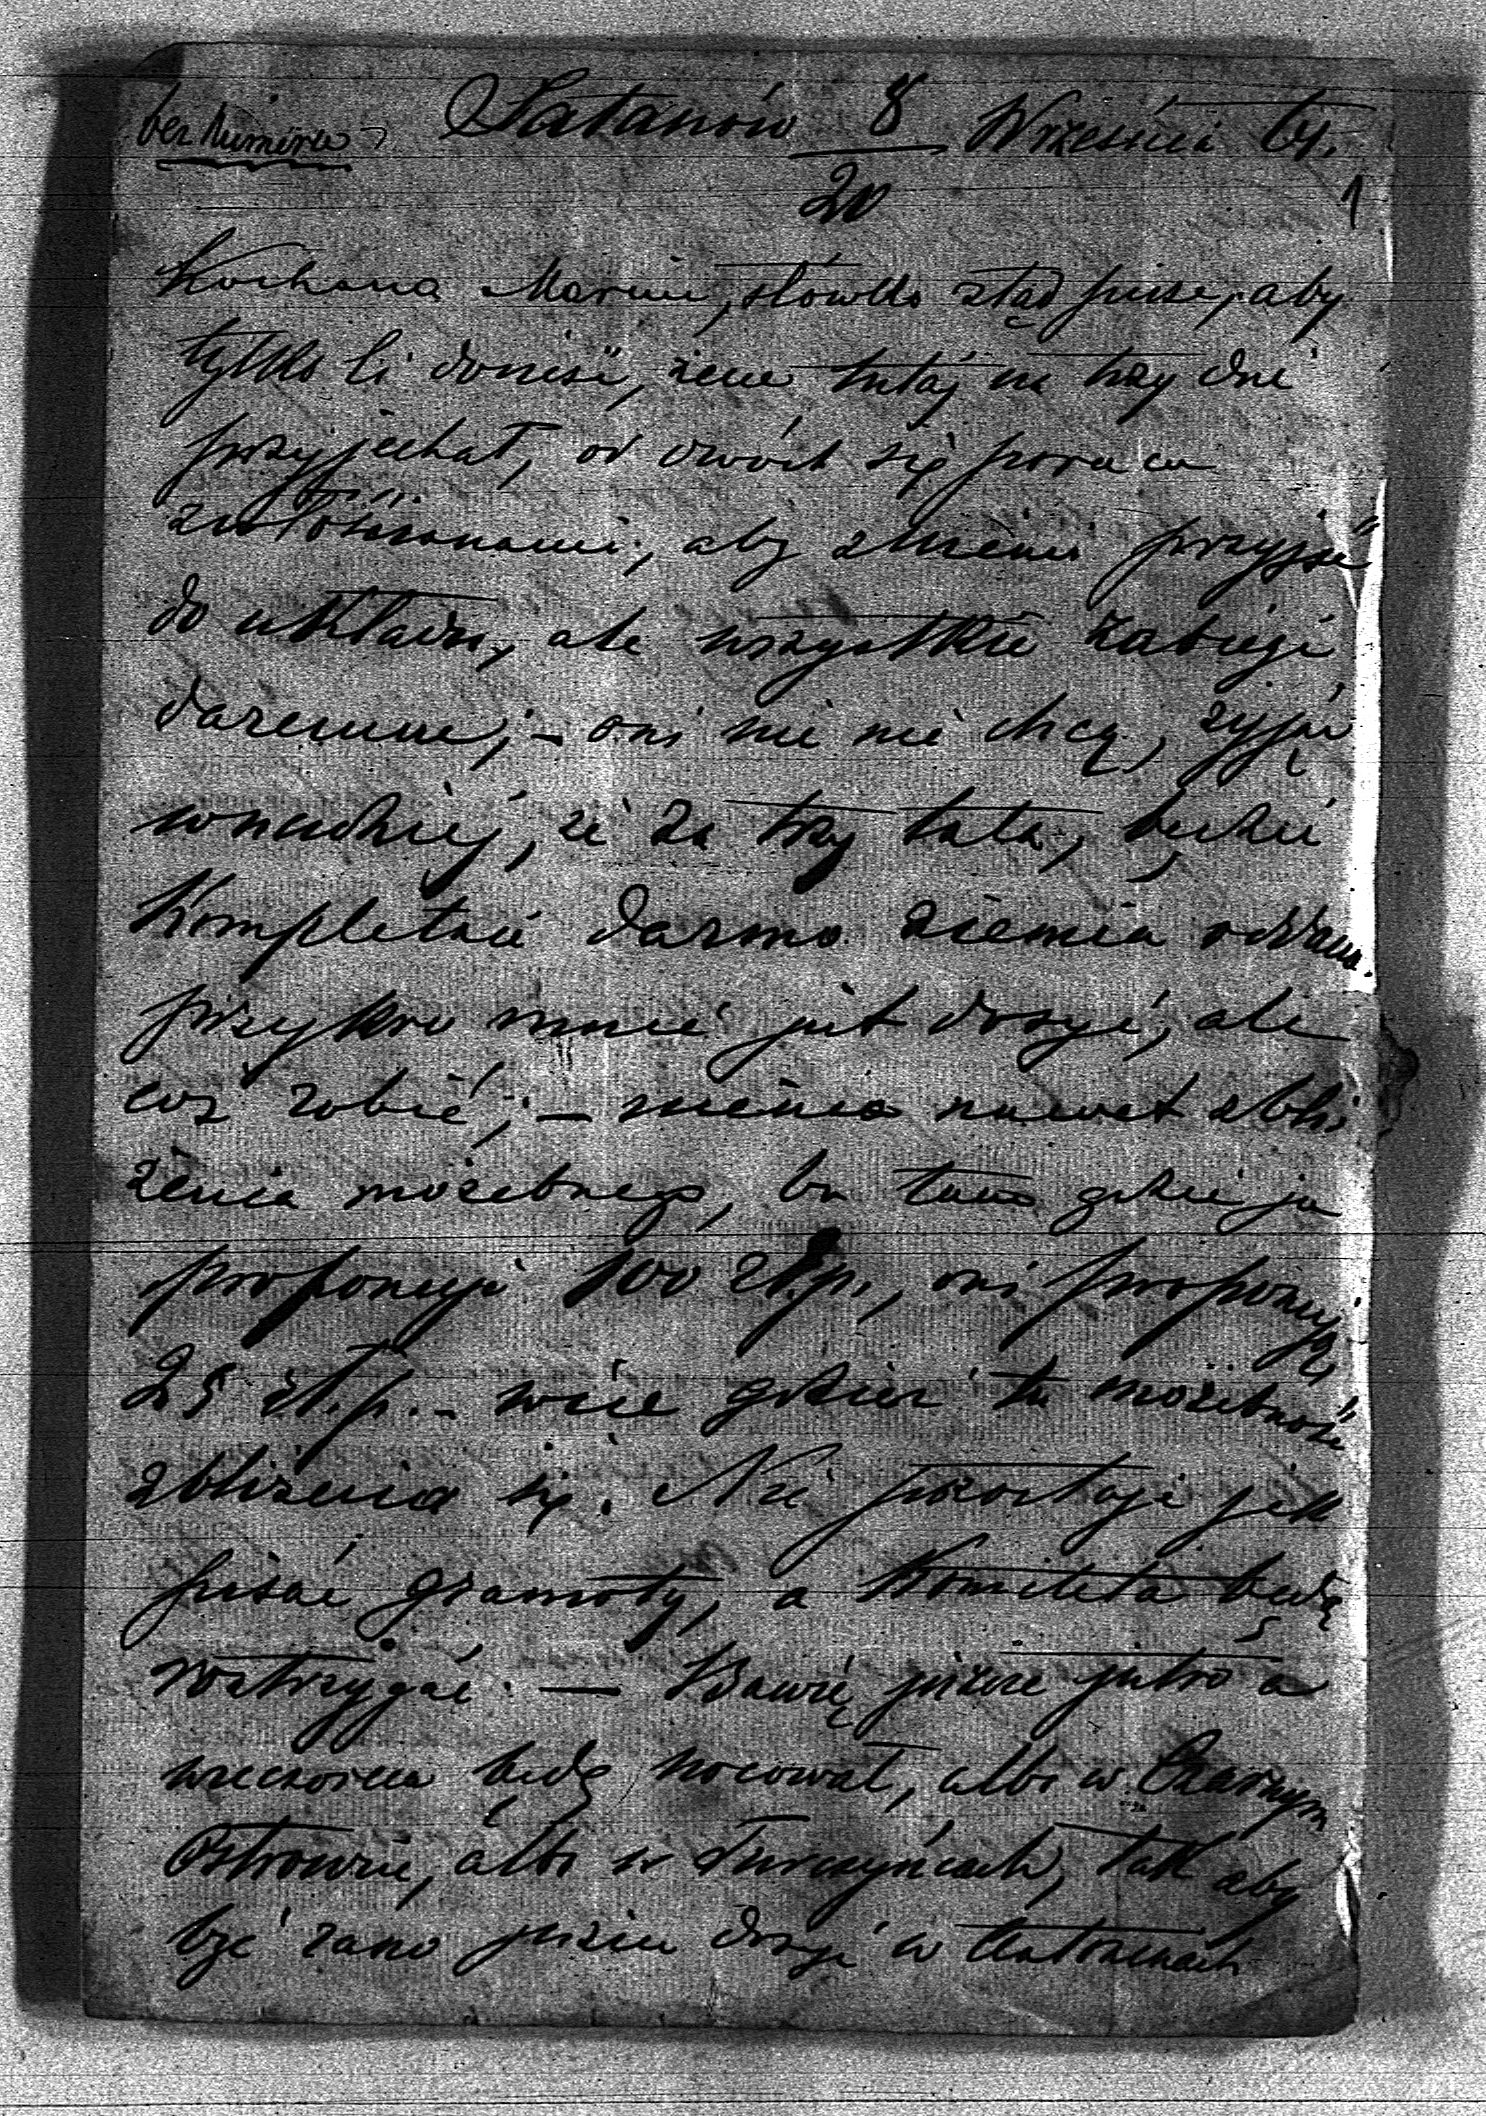 bez Numeru
Satanów 8/20 Września 64.
1
Kochana Maniu, słówko ztąd piszę, aby
tylko Ci donieść, żem tutaj na trzy dni
przyjechał, od dwóch się
z włościanami, aby z niemi przyjść
do układu, ale wszystkie zabiegi
daremne; – oni nic nie chcą, żyją
w nadziei, że za trzy lata, będzie
kompletnie darmo ziemia oddana.
przykro mnie jest dosyć, ale
coż robić; – niema nawet zbli
żenia możebnego, bo tam gdzie ja
proponuję 100 zł.p., oni proponują
25 zł.p. – więc gdzież tu możebność
zbliżenia się. Nie pozostaje jak
pisać gramoty, a Komiteta będą
roztrzygać. — Bawię jeszcze jutro a
wieczorem będę nocował, albo w Czarnym
Ostrowie, albo w Turczyńcach, tak aby
być rano jeszcze dosyć w Antoninach